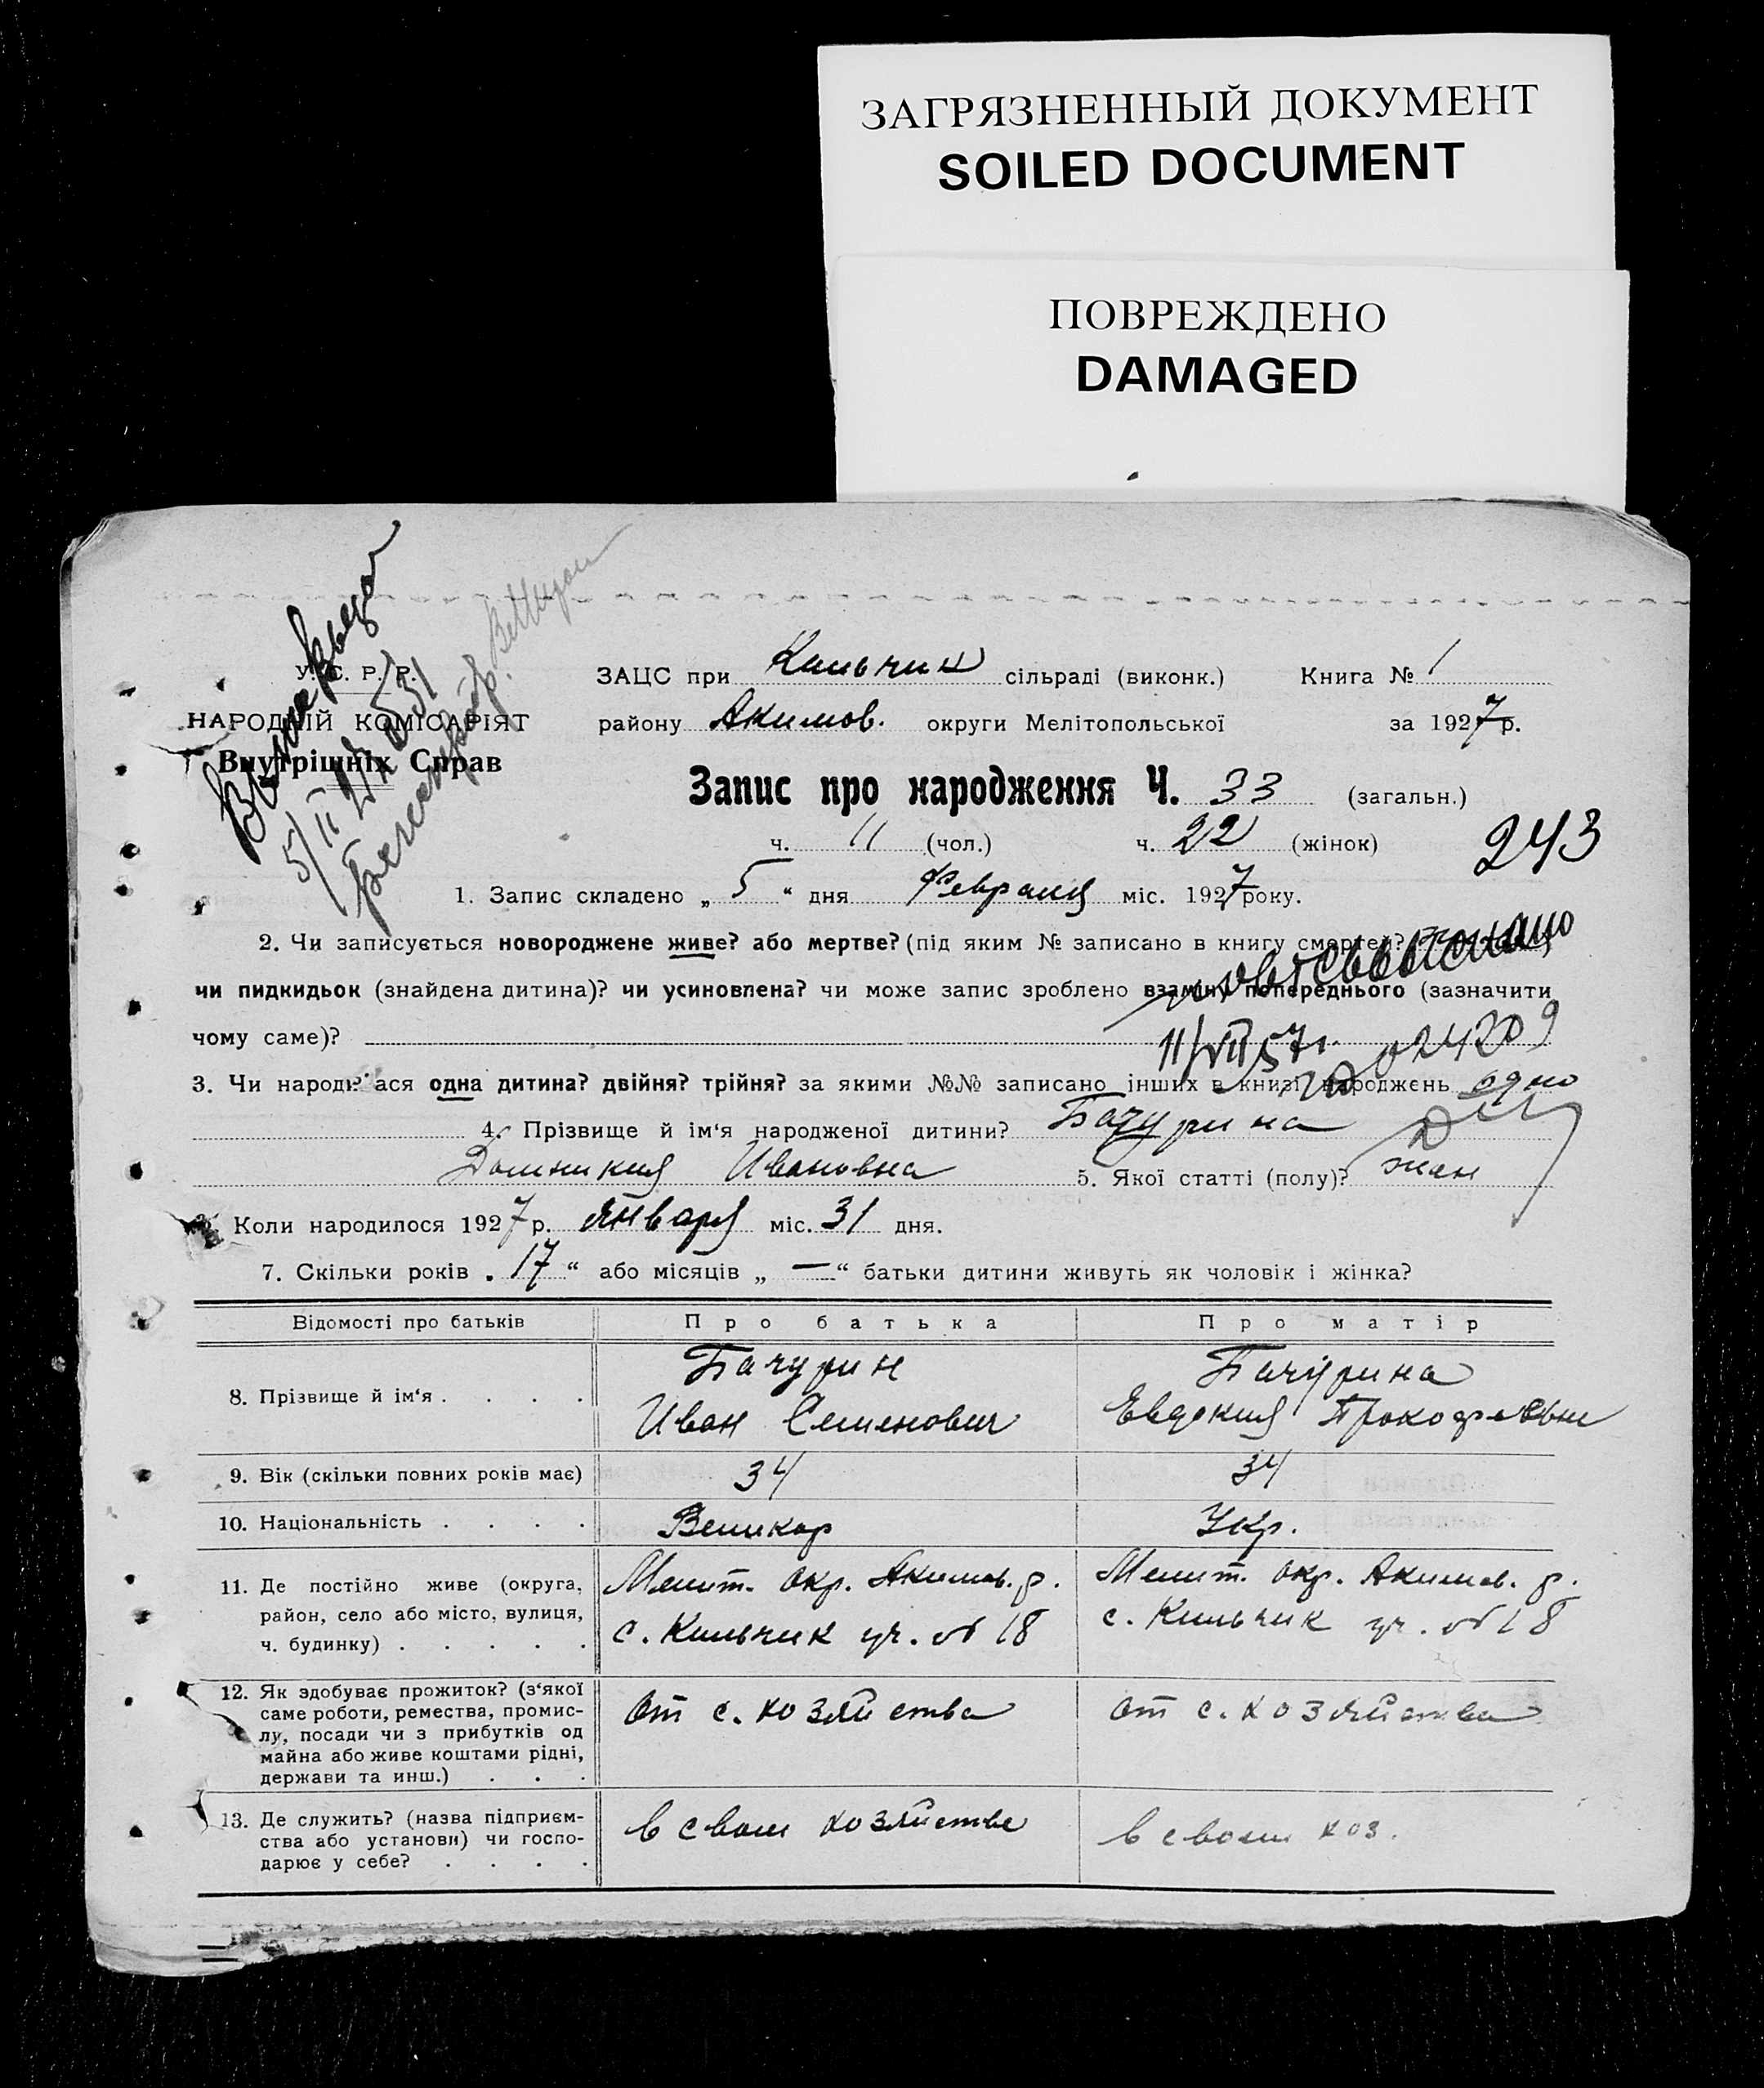 ЗАГРЯЗНЕННЫЙ ДОКУМЕНТ
SOILED DOCUMENT
ПОВРЕЖДЕНО
DAMAGED
У. С. Р. Р.
НАРОДНІЙ КОМІСАРІЯТ
Внутрішніх Справ
ЗАЦС при Кильчик сільраді (виконк.) Книга № 1
району Акимов. округи Мелітопольської за 1927 р.
Запис про народження Ч. 33 (загальн.)
ч. 11 (чол.) ч. 22 (жінок)
243
1. Запис складено „ 5 “ дня Февраля міс. 1927 року.
2. Чи записується новороджене живе? або мертве? (під яким № записано в книгу смертей?
чи пидкидьок (знайдена дитина)? чи усиновлена? чи може запис зроблено взаміну попереднього (зазначити
чому саме)?
11/VII 57 г.
3. Чи народилася одна дитина? двійня? трійня? за якими №№ записано інших в книзі народжень одно
4. Прізвище й ім‘я народженої дитини? Бачурина
Домникия Ивановна 5. Якої статті (полу)? жен
Коли народилося 1927 р. Января міс. 31 дня.
7. Скільки років „ 17 “ або місяців „ — “ батьки дитини живуть як чоловік і жінка?
Відомості про батьків Про батька Про матір
8. Прізвище й ім‘я . . . . Бачурин Бачурина
Иван Семенович Евдокия Прокофьевна
9. Вік (скільки повних років має) 34 34
10. Національність . . . . Великор Укр.
11. Де постійно живе (округа, Мелит. окр. Акимов. р. Мелит. окр. Акимов. р.
район, село або місто, вулиця, с. Кильчик уч. № 18 с. Кильчик уч. № 18
ч. будинку) . . . . .
12. Як здобуває прожиток? (з‘якої От с. хозяйства От с. хозяйства
саме роботи, ремества, промис-
лу, посади чи з прибутків од
майна або живе коштами рідні,
держави та инш.) . . .
13. Де служить? (назва підприєм- в своем хозяйстве в своем хоз.
ства або установи) чи госпо-
дарює у себе? . . . .